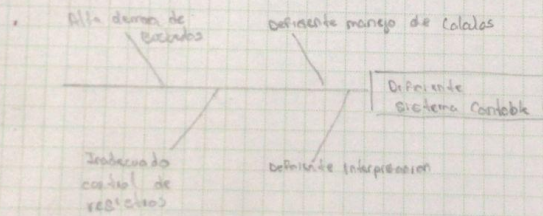 Alta deman de
Deficiente manejo de Calalos
Deficiente
Sistema Contable
Inadecuado
control de
registros
Deficiente interpretacion